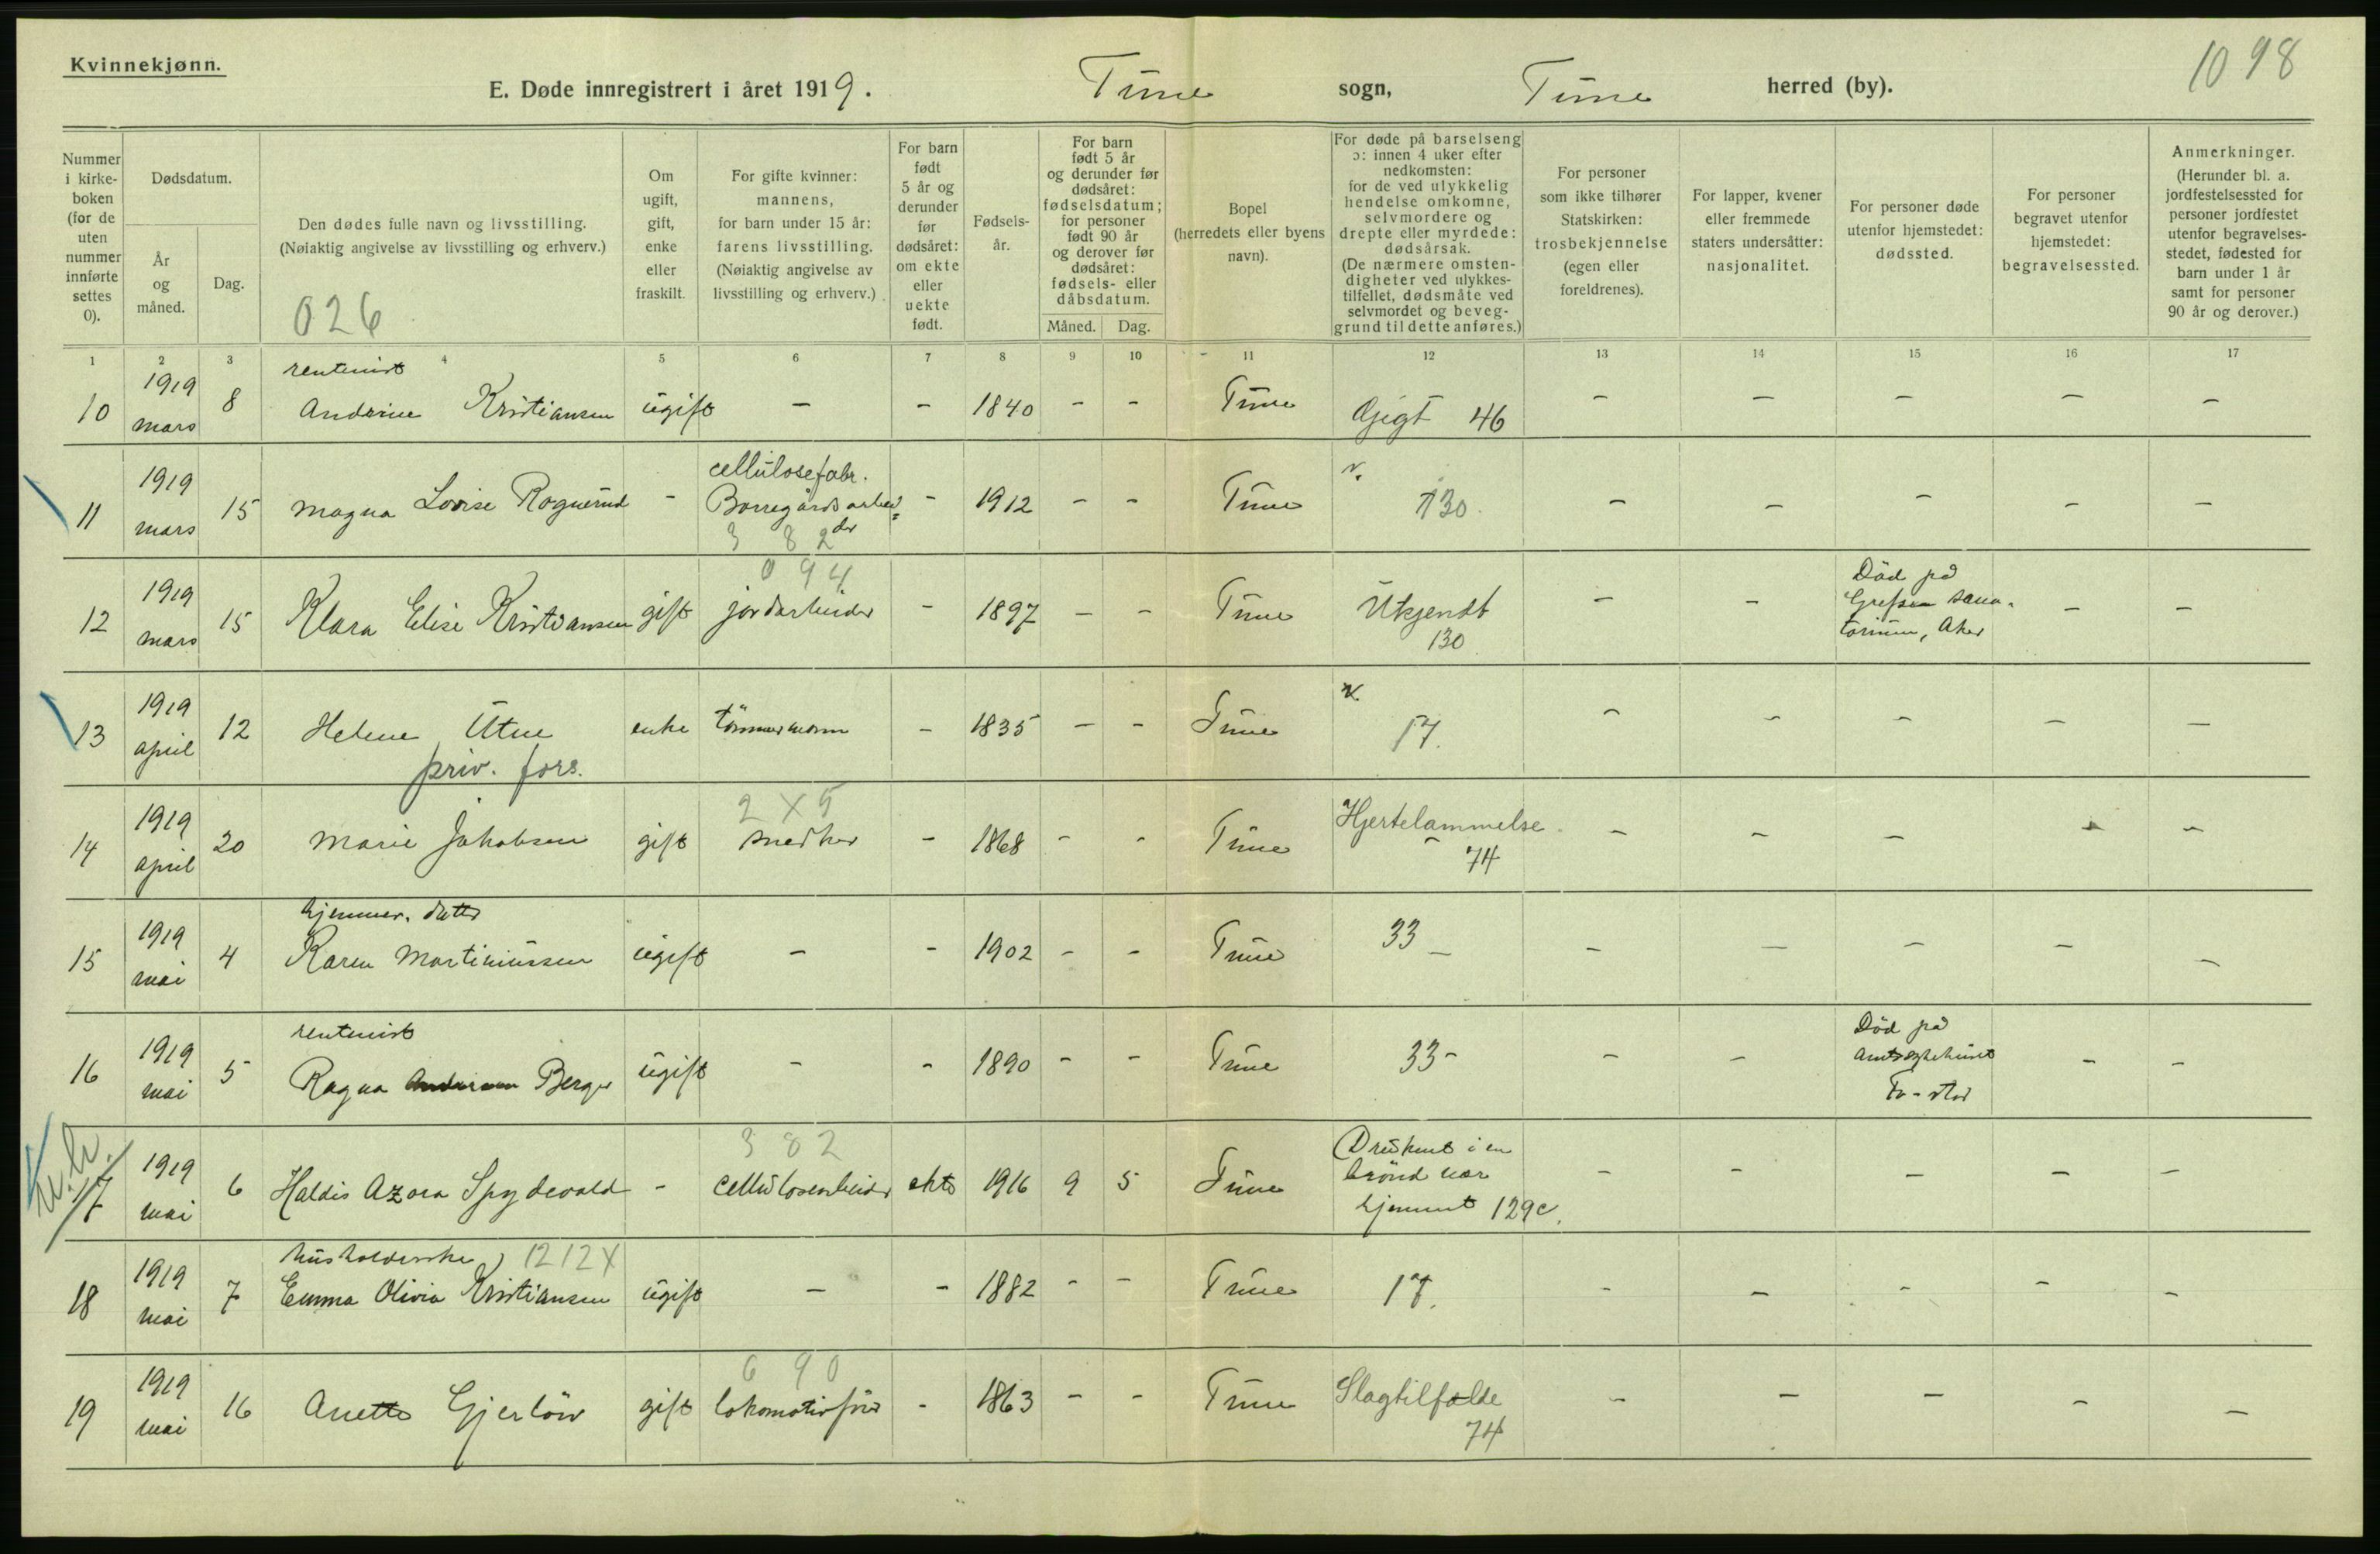 Kvinnekjønn.
E. Døde innregistrert i året 1919. Tune sogn, Tune herred (by).
1098
Nummer i kirkeboken (for de uten nummer innførte settes 0).
Dødsdatum.
År og måned.
Dag.
Den dødes fulle navn og livsstilling.
(Nøiaktig angivelse av livsstilling og erhverv.)
026
Om ugift, gift, enke eller fraskilt.
For gifte kvinner: mannens, for barn under 15 år: farens livsstilling. (Nøiaktig angivelse av livsstilling og erhverv.)
For barn født 5 år og derunder før dødsåret: om ekte eller uekte født.
Fødselsår.
For barn født 5 år og derunder før dødsåret: fødselsdatum; for personer født 90 år og derover før dødsåret: fødsels- eller dåbsdatum.
Måned. Dag.
Bopel (herredets eller byens navn).
For døde på barselseng ɔ: innen 4 uker efter nedkomsten: for de ved ulykkelig hendelse omkomne, selvmordere og drepte eller myrdede: dødsårsak. (De nærmere omstendigheter ved ulykkestilfellet, dødsmåte ved selvmordet og beveggrund til dette anføres.)
For personer som ikke tilhører Statskirken: trosbekjennelse (egen eller foreldrenes).
For lapper, kvener eller fremmede staters undersåtter: nasjonalitet.
For personer døde utenfor hjemstedet: dødssted.
For personer begravet utenfor hjemstedet: begravelsessted.
Anmerkninger. (Herunder bl. a. jordfestelsessted for personer jordfestet utenfor begravelsesstedet, fødested for barn under 1 år samt for personer 90 år og derover.)
1 2 3 4 5 6 7 8 9 10 11 12 13 14 15 16 17
rentenist
10 1919 mars 8 Andrine Kristiansen ugift - - 1840 - - Tune Gigt 46 - - - - -
cellulosefabr.
11 1919 mars 15 Magna Lovise Rognerud - Borregårdsarbeider - 1912 - - Tune v. 130. - - - - -
3 8 2
094
12 1919 mars 15 Klara Elise Kristiansen gift jordarbeider - 1897 - - Tune Ukjendt 130. - - Död på Grefsen sanatorium, Aker - -
13 1919 april 12 Helene Utne enke tömmermann - 1835 - - Tune 17. - - - - -
priv. fors.
2 X 5
14 1919 april 20 Marie Jakobsen gift snedker - 1868 - - Tune Hjertelammelse. 74 - - - - -
hjemmev. datter
15 1919 mai 4 Karen Martinussen ugift - - 1902 - - Tune 33 - - - - - -
rentenist
16 1919 mai 5 Ragna Berger ugift - - 1890 - - Tune 33 - - - Död på Amtssykehuset Fr-stad - -
3 8 2
17 1919 mai 6 Haldis Azora Spydevold - cellulosearbeider ekte 1916 9 5 Tune Druknet i en brönd nær hjemmet 129c. - - - - -
husholderske 1212X
18 1919 mai 7 Emma Olivia Kristiansen ugift - - 1882 - - Tune 17. - - - - -
6 9 0
19 1919 mai 16 Anette Gjerlöw gift lokomotivförer - 1863 - - Tune Slagtilfælde 74 - - - - -